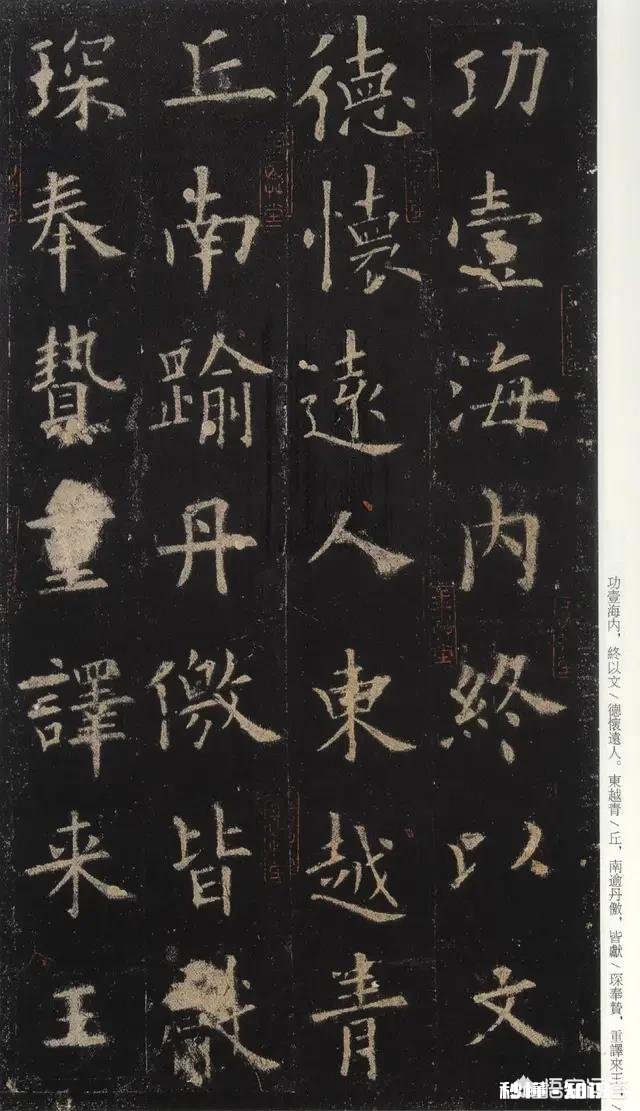 功壹海内終以文
德懷遠人東越青
丘南踰丹徼皆獻
琛奉贄重譯来王
功壹海内，終以文/德懷遠人。東越青/丘，南逾丹徼，皆獻/琛奉贄，重譯來王，/
秒懂知识